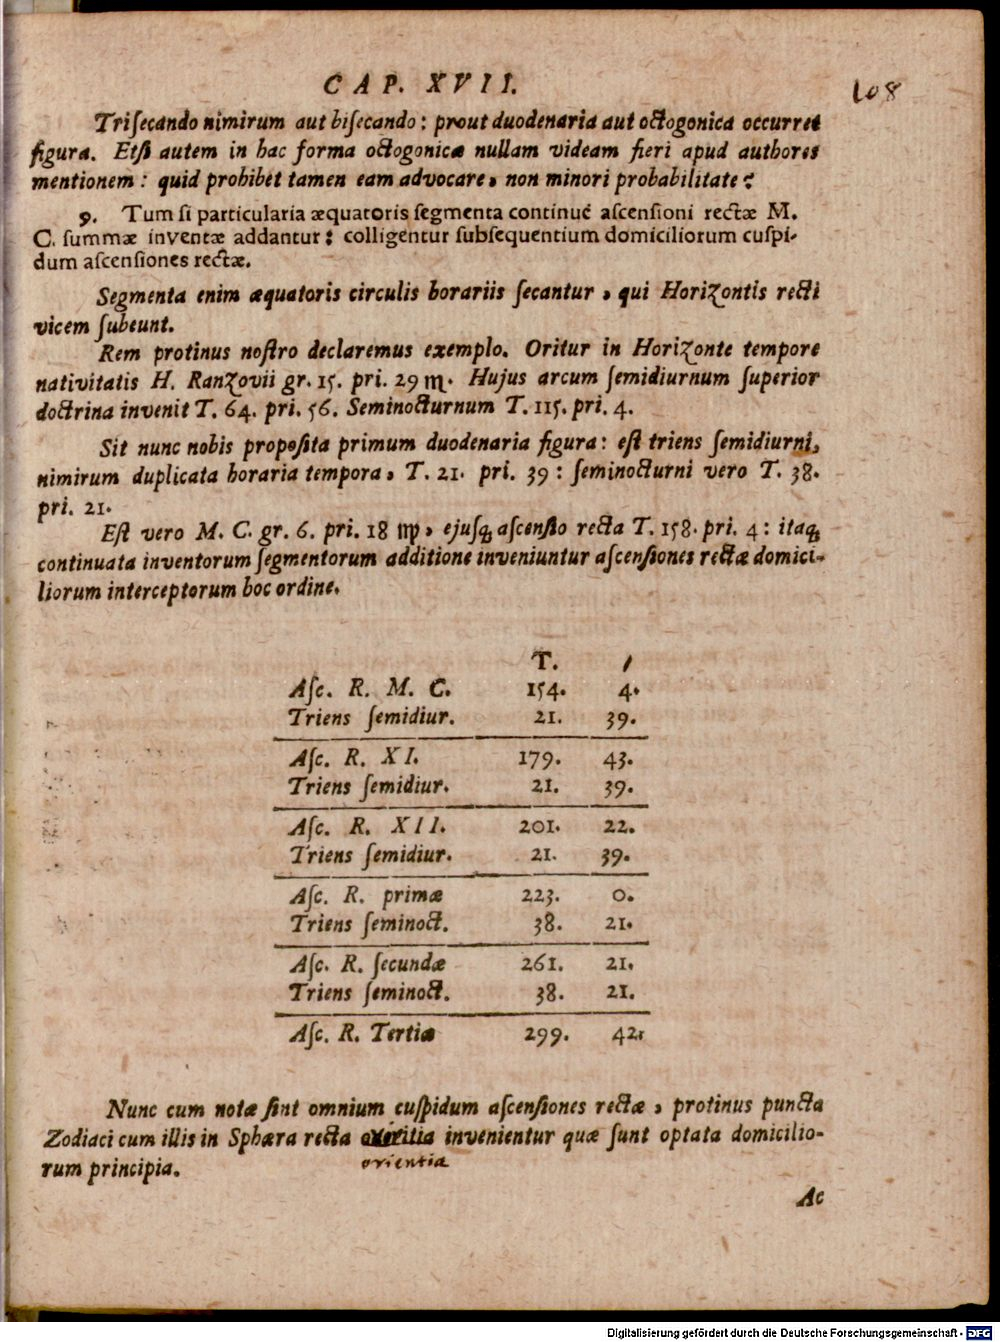 CAP. XVII.
108
Triſecando nimirum aut biſecando: prout duodenaria aut octogonica occurret
figura. Etſi autem in hac forma octogonicæ nullam videam fieri apud authores
mentionem: quid prohibet tamen eam advocare, non minori probabilitate?
9. Tum ſi particularia æquatoris ſegmenta continuè aſcenſioni rectæ M.
C. ſummæ inventæ addantur: colligentur ſubſequentium domiciliorum cuſpi-
dum aſcenſiones rectæ.
Segmenta enim æquatoris circulis horariis ſecantur, qui Horizontis recti
vicem ſubeunt.
Rem protinus noſtro declaremus exemplo. Oritur in Horizonte tempore
nativitatis H. Ranzovii gr. 15. pri. 29 ♏. Hujus arcum ſemidiurnum ſuperior
doctrina invenit T. 64. pri. 56. Seminocturnum T. 115. pri. 4.
Sit nunc nobis propoſita primum duodenaria figura: eſt triens ſemidiurni,
nimirum duplicata horaria tempora, T. 21. pri. 39: ſeminocturni vero T. 38.
pri. 21.
Eſt vero M. C. gr. 6. pri. 18 ♍, ejuſq; aſcenſio recta T. 158. pri. 4: itaq;
continuata inventorum ſegmentorum additione inveniuntur aſcenſiones rectæ domici-
liorum interceptorum hoc ordine.
T. ′
Aſc. R. M. C. 154. 4.
Triens ſemidiur. 21. 39.
Aſc. R. XI. 179. 43.
Triens ſemidiur. 21. 39.
Aſc. R. XII. 201. 22.
Triens ſemidiur. 21. 39.
Aſc. R. primæ 223. 0.
Triens ſeminoct. 38. 21.
Aſc. R. ſecundæ 261. 21.
Triens ſeminoct. 38. 21.
Aſc. R. Tertiæ 299. 42.
Nunc cum notæ ſint omnium cuſpidum aſcenſiones rectæ, protinus puncta
Zodiaci cum illis in Sphæra recta invenientur quæ ſunt optata domicilio-
orientia
rum principia.
Ac
Digitalisierung gefördert durch die Deutsche Forschungsgemeinschaft - DFG